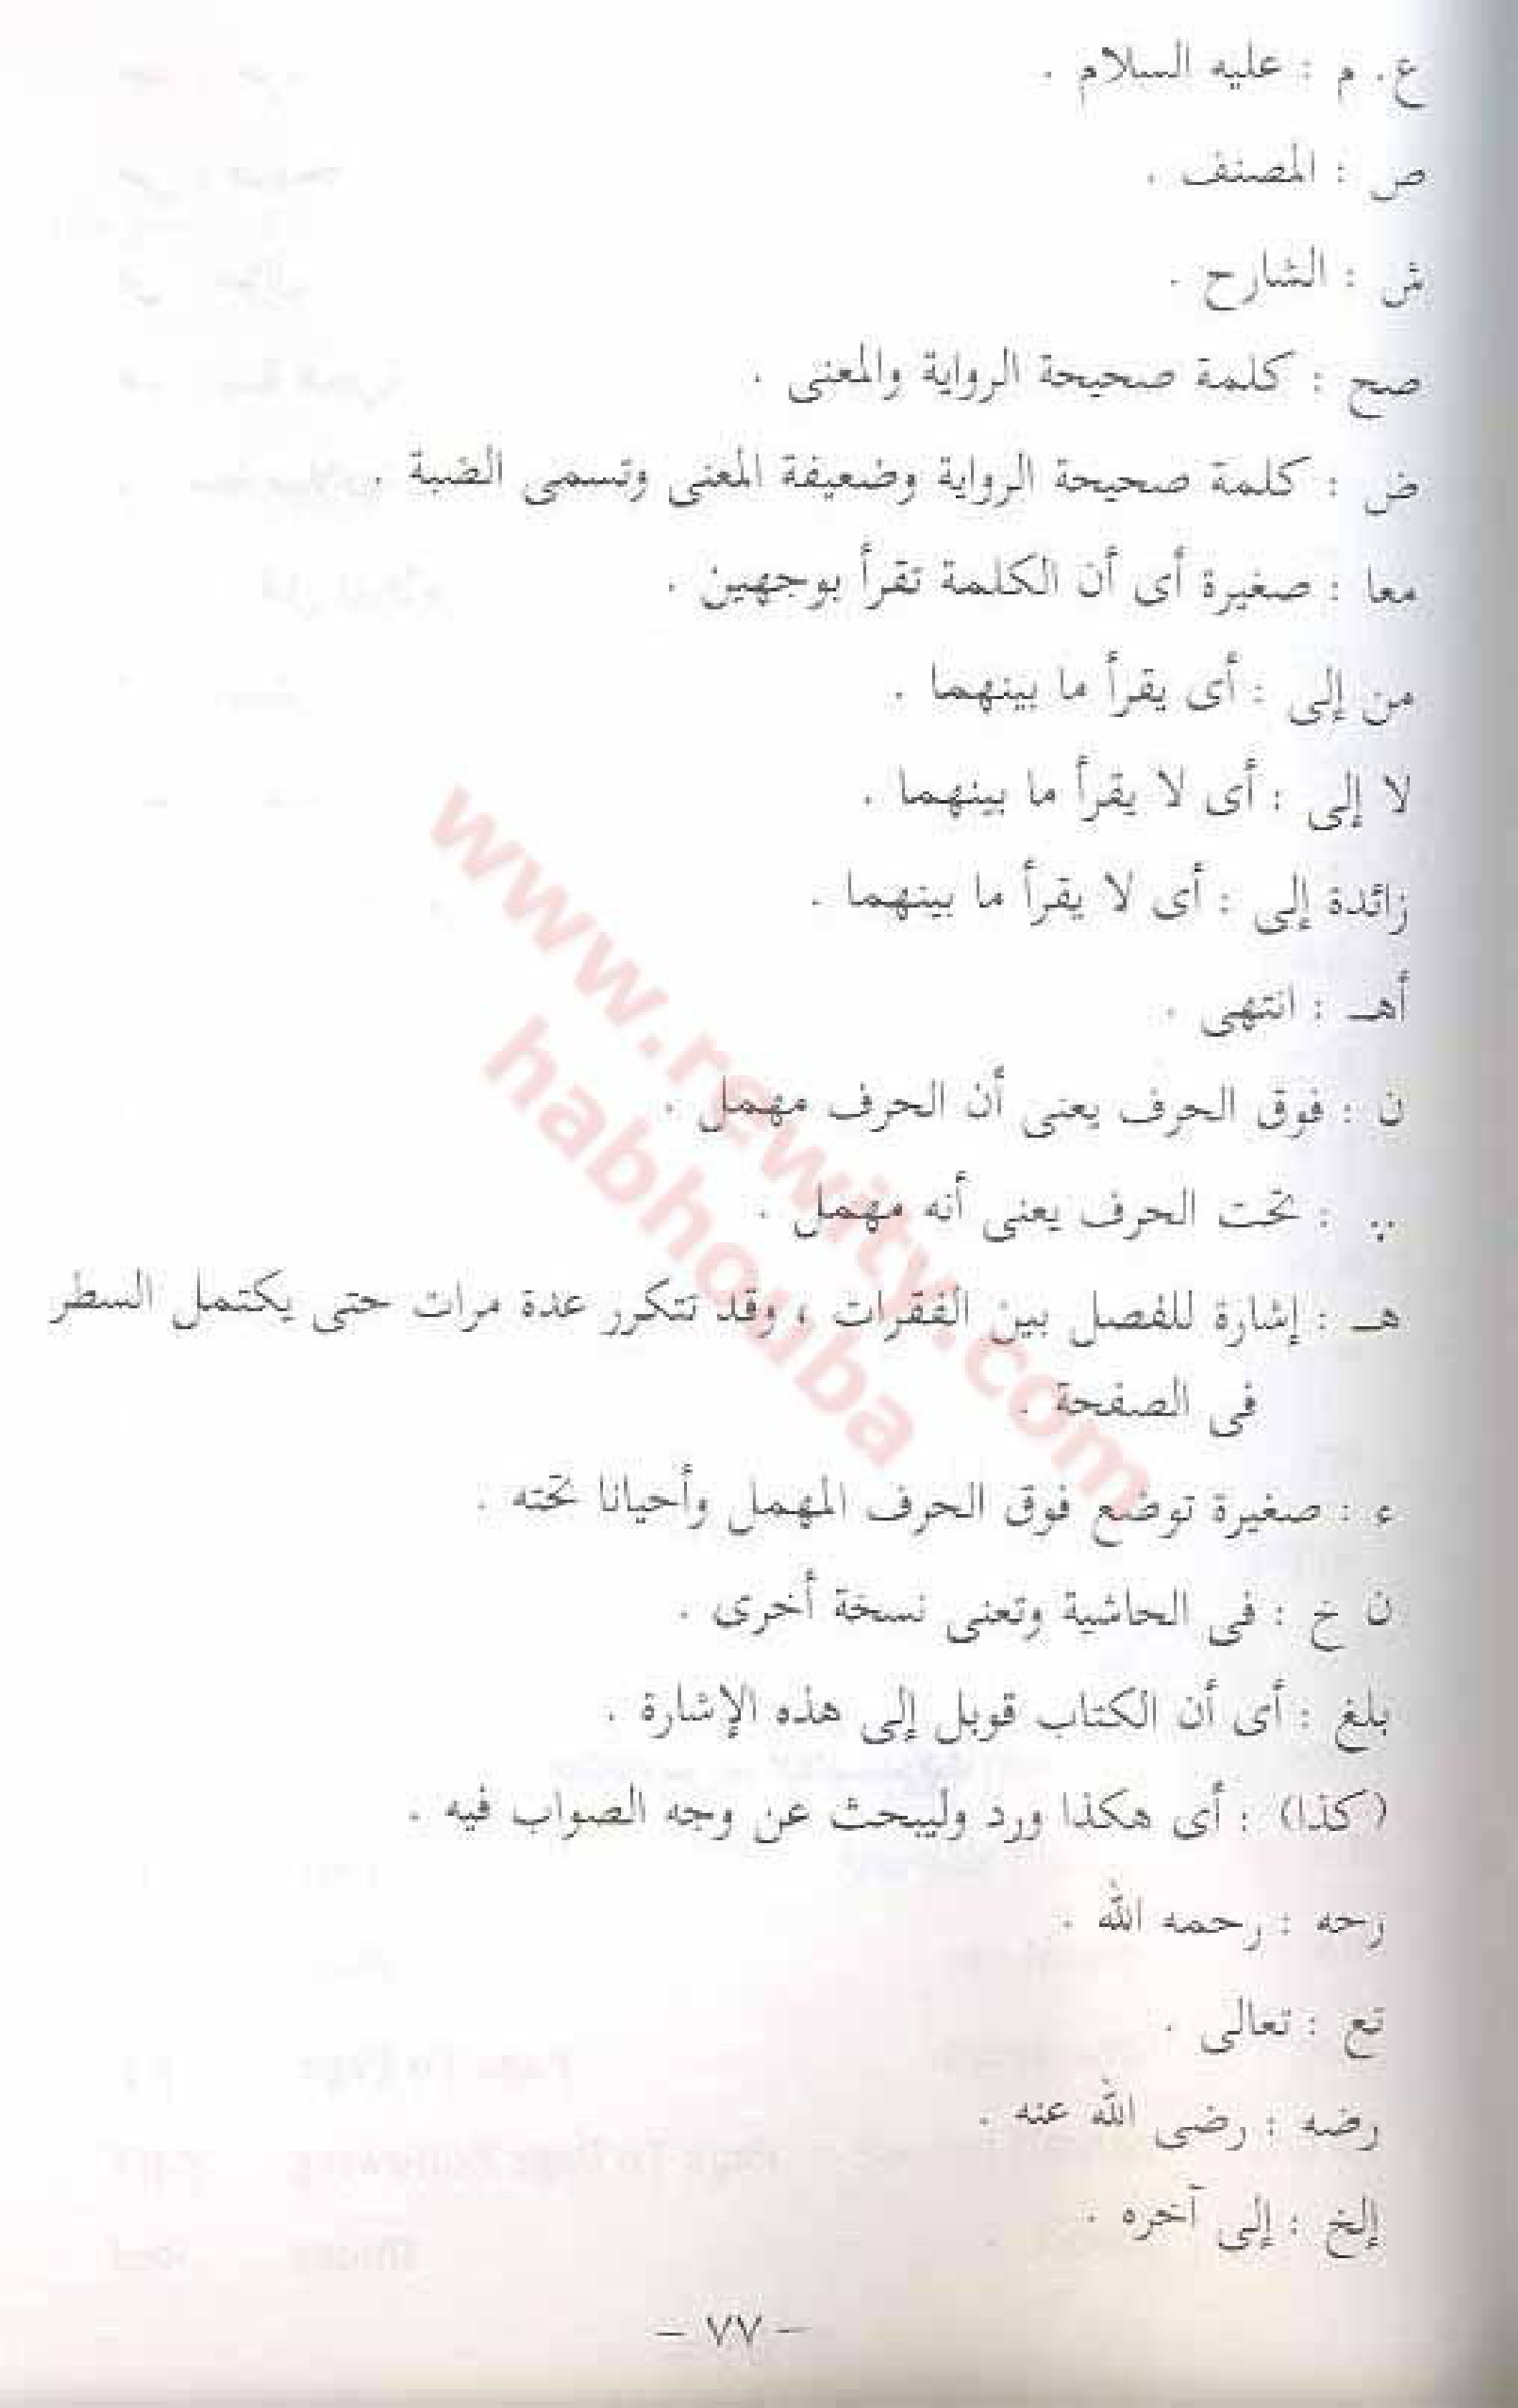 ع. م : عليه السلام .
ص : المصنف .
ش : الشارح .
صح : كلمة صحيحة الرواية والمعنى .
ض : كلمة صحيحة الرواية وضعيفة المعنى وتسمى الضبة .
معا : صغيرة أى أن الكلمة تقرأ بوجهين .
من إلى : أى يقرأ ما بينهما .
لا إلى : أى لا يقرأ ما بينهما .
زائدة إلى : أى لا يقرأ ما بينهما .
أهـ : انتهى .
ن : فوق الحرف يعنى أن الحرف مهمل .
: تحت الحرف يعنى أنه مهمل .
هـ : إشارة للفصل بين الفقرات ، وقد تتكرر عدة مرات حتى يكتمل السطر
فى الصفحة .
ء : صغيرة توضع فوق الحرف المهمل وأحيانا تحته .
ن خ : فى الحاشية وتعنى نسخة أخرى .
بلغ : أى أن الكتاب قوبل إلى هذه الإشارة .
(كذا) : أى هكذا ورد وليبحث عن وجه الصواب فيه .
رحه : رحمه الله .
تع : تعالى .
رضه : رضى الله عنه .
إلخ : إلى آخره .
– ٧٧ –
www.rewity.com
habhouba